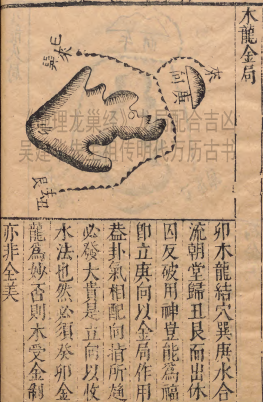 木龍金局
來
庚
向
巽
來
艮丑
理龙巢经
配合吉凶
祖传明代万历古书
卯木龍結穴巽庚水合
流朝堂歸丑艮而出休
囚反破用神豈能爲福
卽立庚向以金局作用
益卦氣相配向指所趋
必發大貴是立向以收
水法也然必須癸卯金
龍爲妙否則木受金制
亦非全美